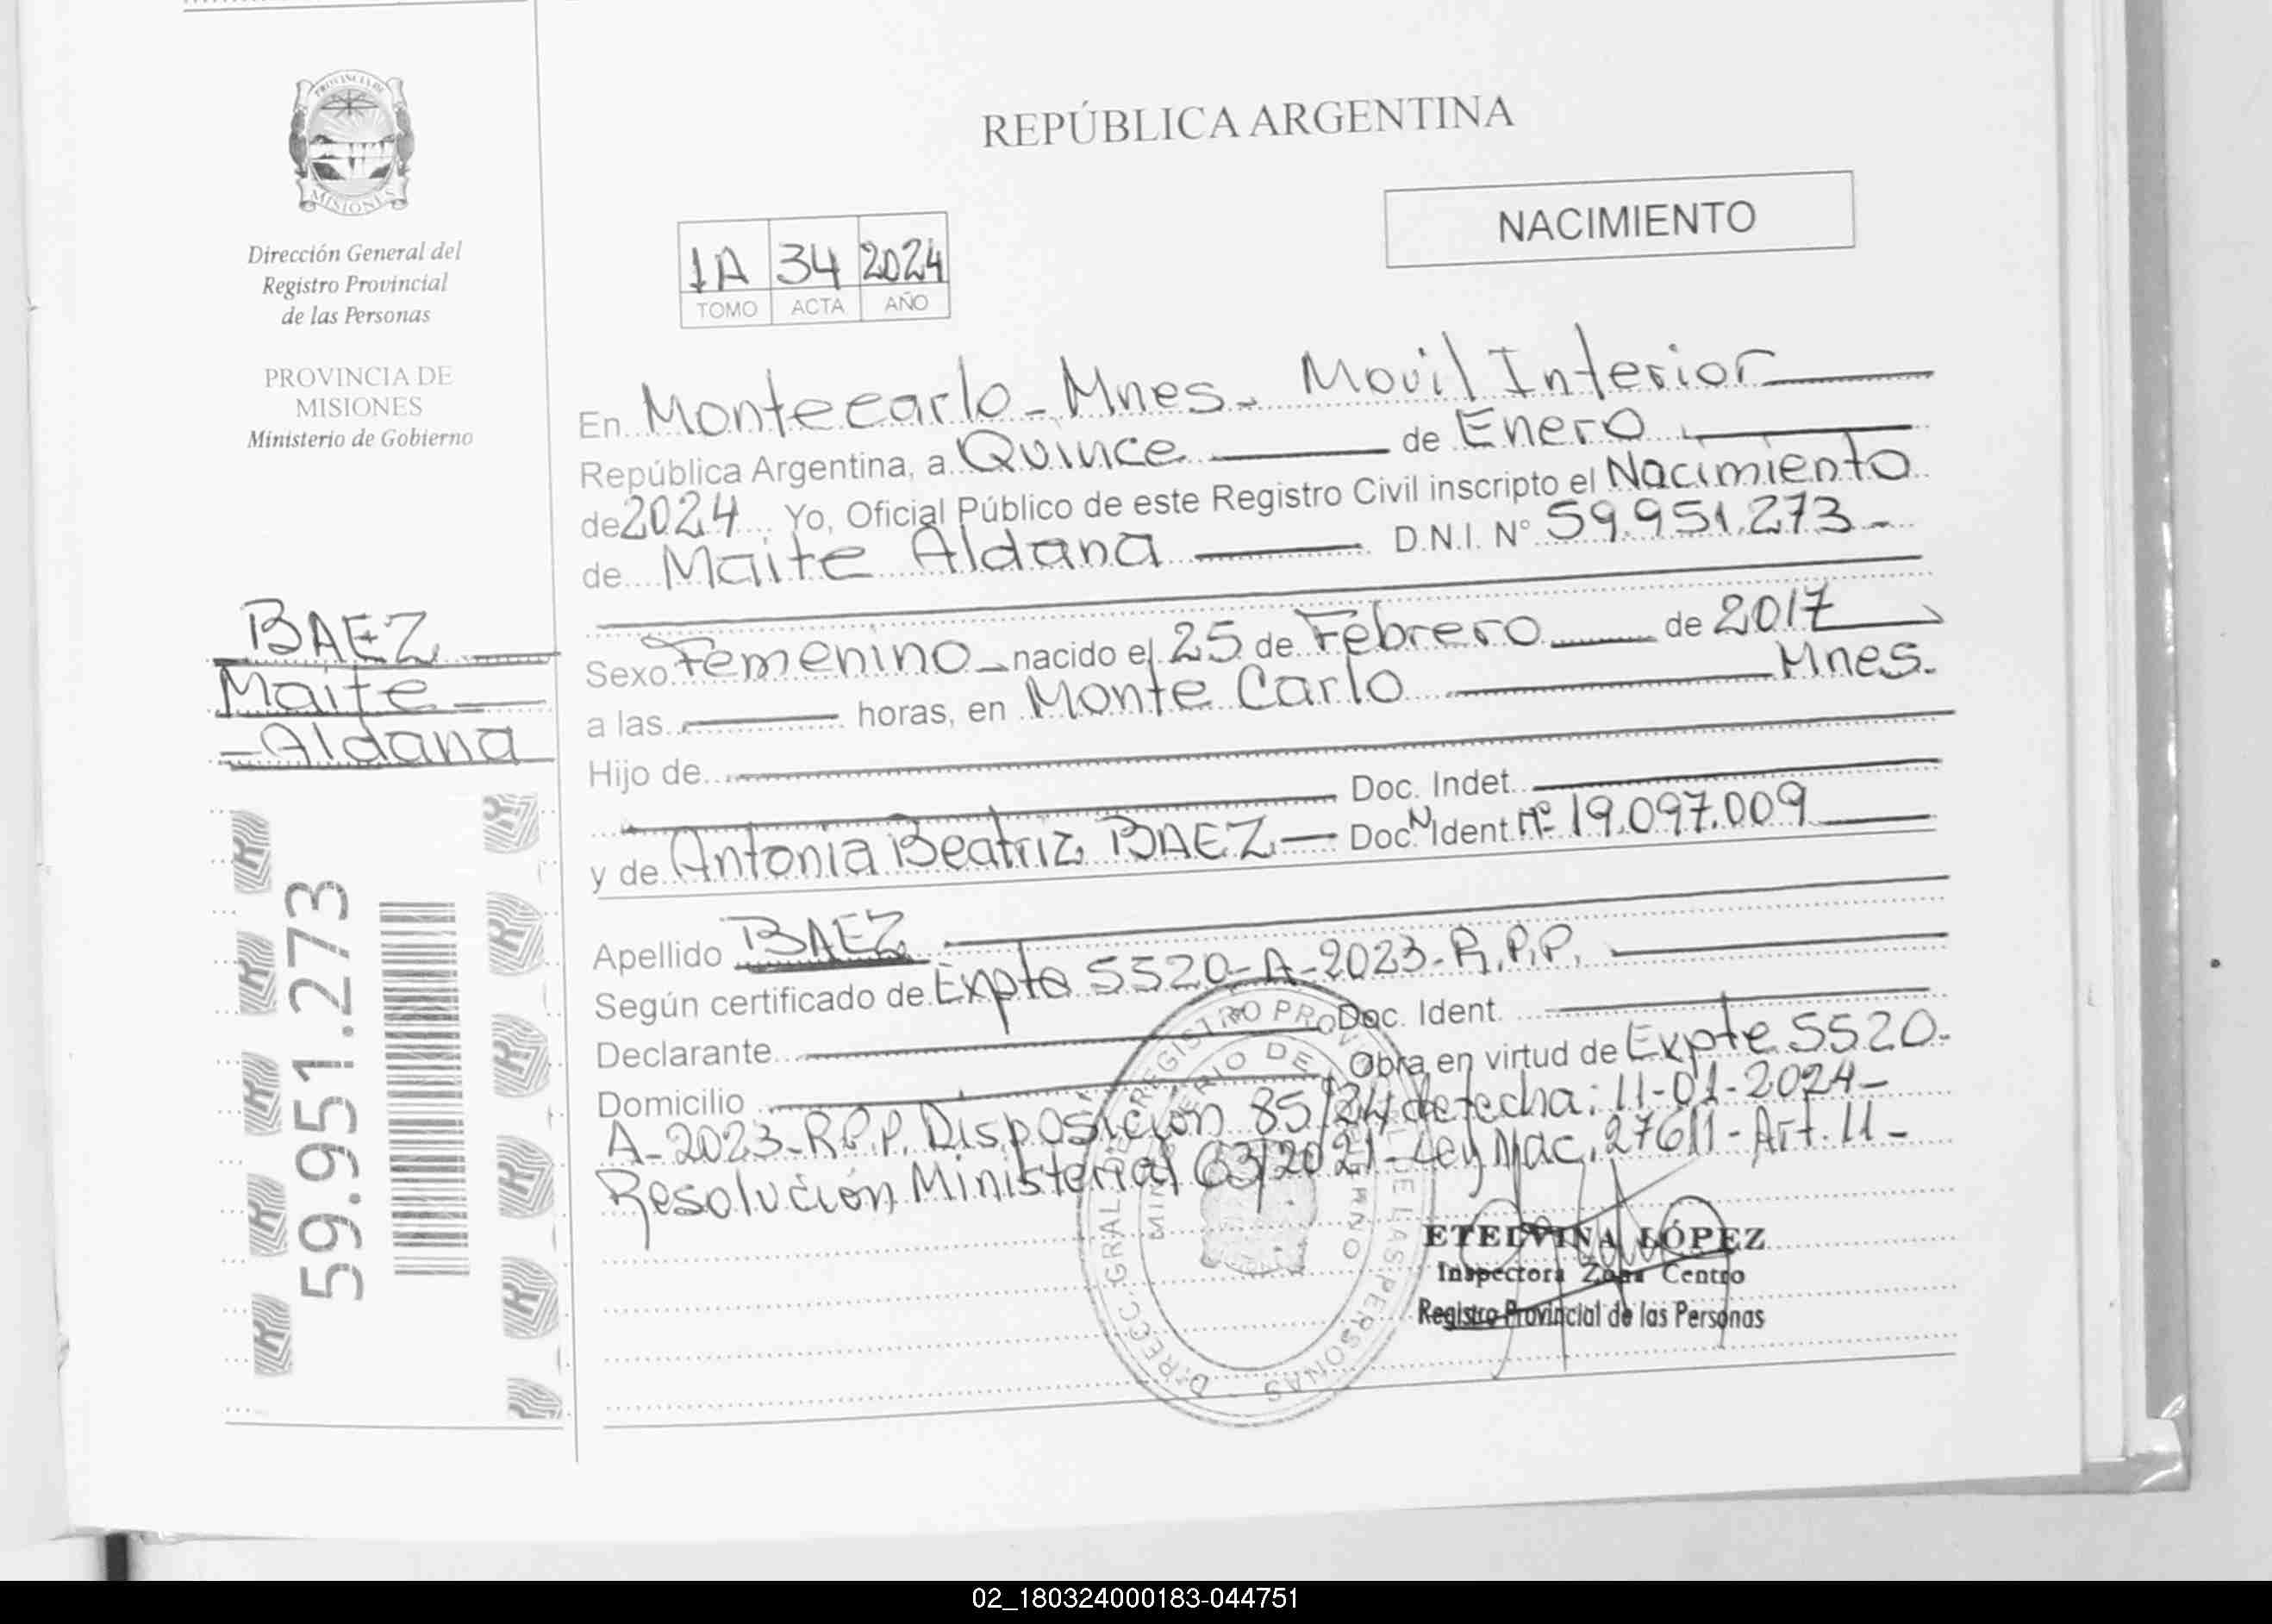 PROVINCIA DE
MISIONES
Dirección General del
Registro Provincial
de las Personas
PROVINCIA DE
MISIONES
Ministerio de Gobierno
BAEZ
Maite
Aldana
59.951.273
REPÚBLICA ARGENTINA
NACIMIENTO
1A 34 2024
TOMO ACTA AÑO
En Montecarlo - Mnes - Movil Interior
República Argentina, a Quince de Enero
de 2024 Yo, Oficial Público de este Registro Civil inscripto el Nacimiento
de Maite Aldana D.N.I. N° 59.951.273 -
Sexo Femenino - nacido el 25 de Febrero de 2017
a las horas, en Monte Carlo Mnes.
Hijo de
Doc. Indet.
y de Antonia Beatriz BAEZ - Doc. N Ident Nº 19.097.009
Apellido BAEZ
Según certificado de Expte 5520-A-2023-R.P.P.
Declarante Doc. Ident.
Domicilio Obra en virtud de Expte 5520-
A-2023-R.P.P. Disposición 85/24 de fecha: 11-01-2024-
Resolución Ministerial 63/2021 - Ley Nac. 27611 - Art. 11 -
DIRECC. GRAL. DEL REGISTRO PROVINCIAL DE LAS PERSONAS -
MINISTERIO DE GOBIERNO
ETELVINA LÓPEZ
Inspectora Zona Centro
Registro Provincial de las Personas
02_180324000183-044751